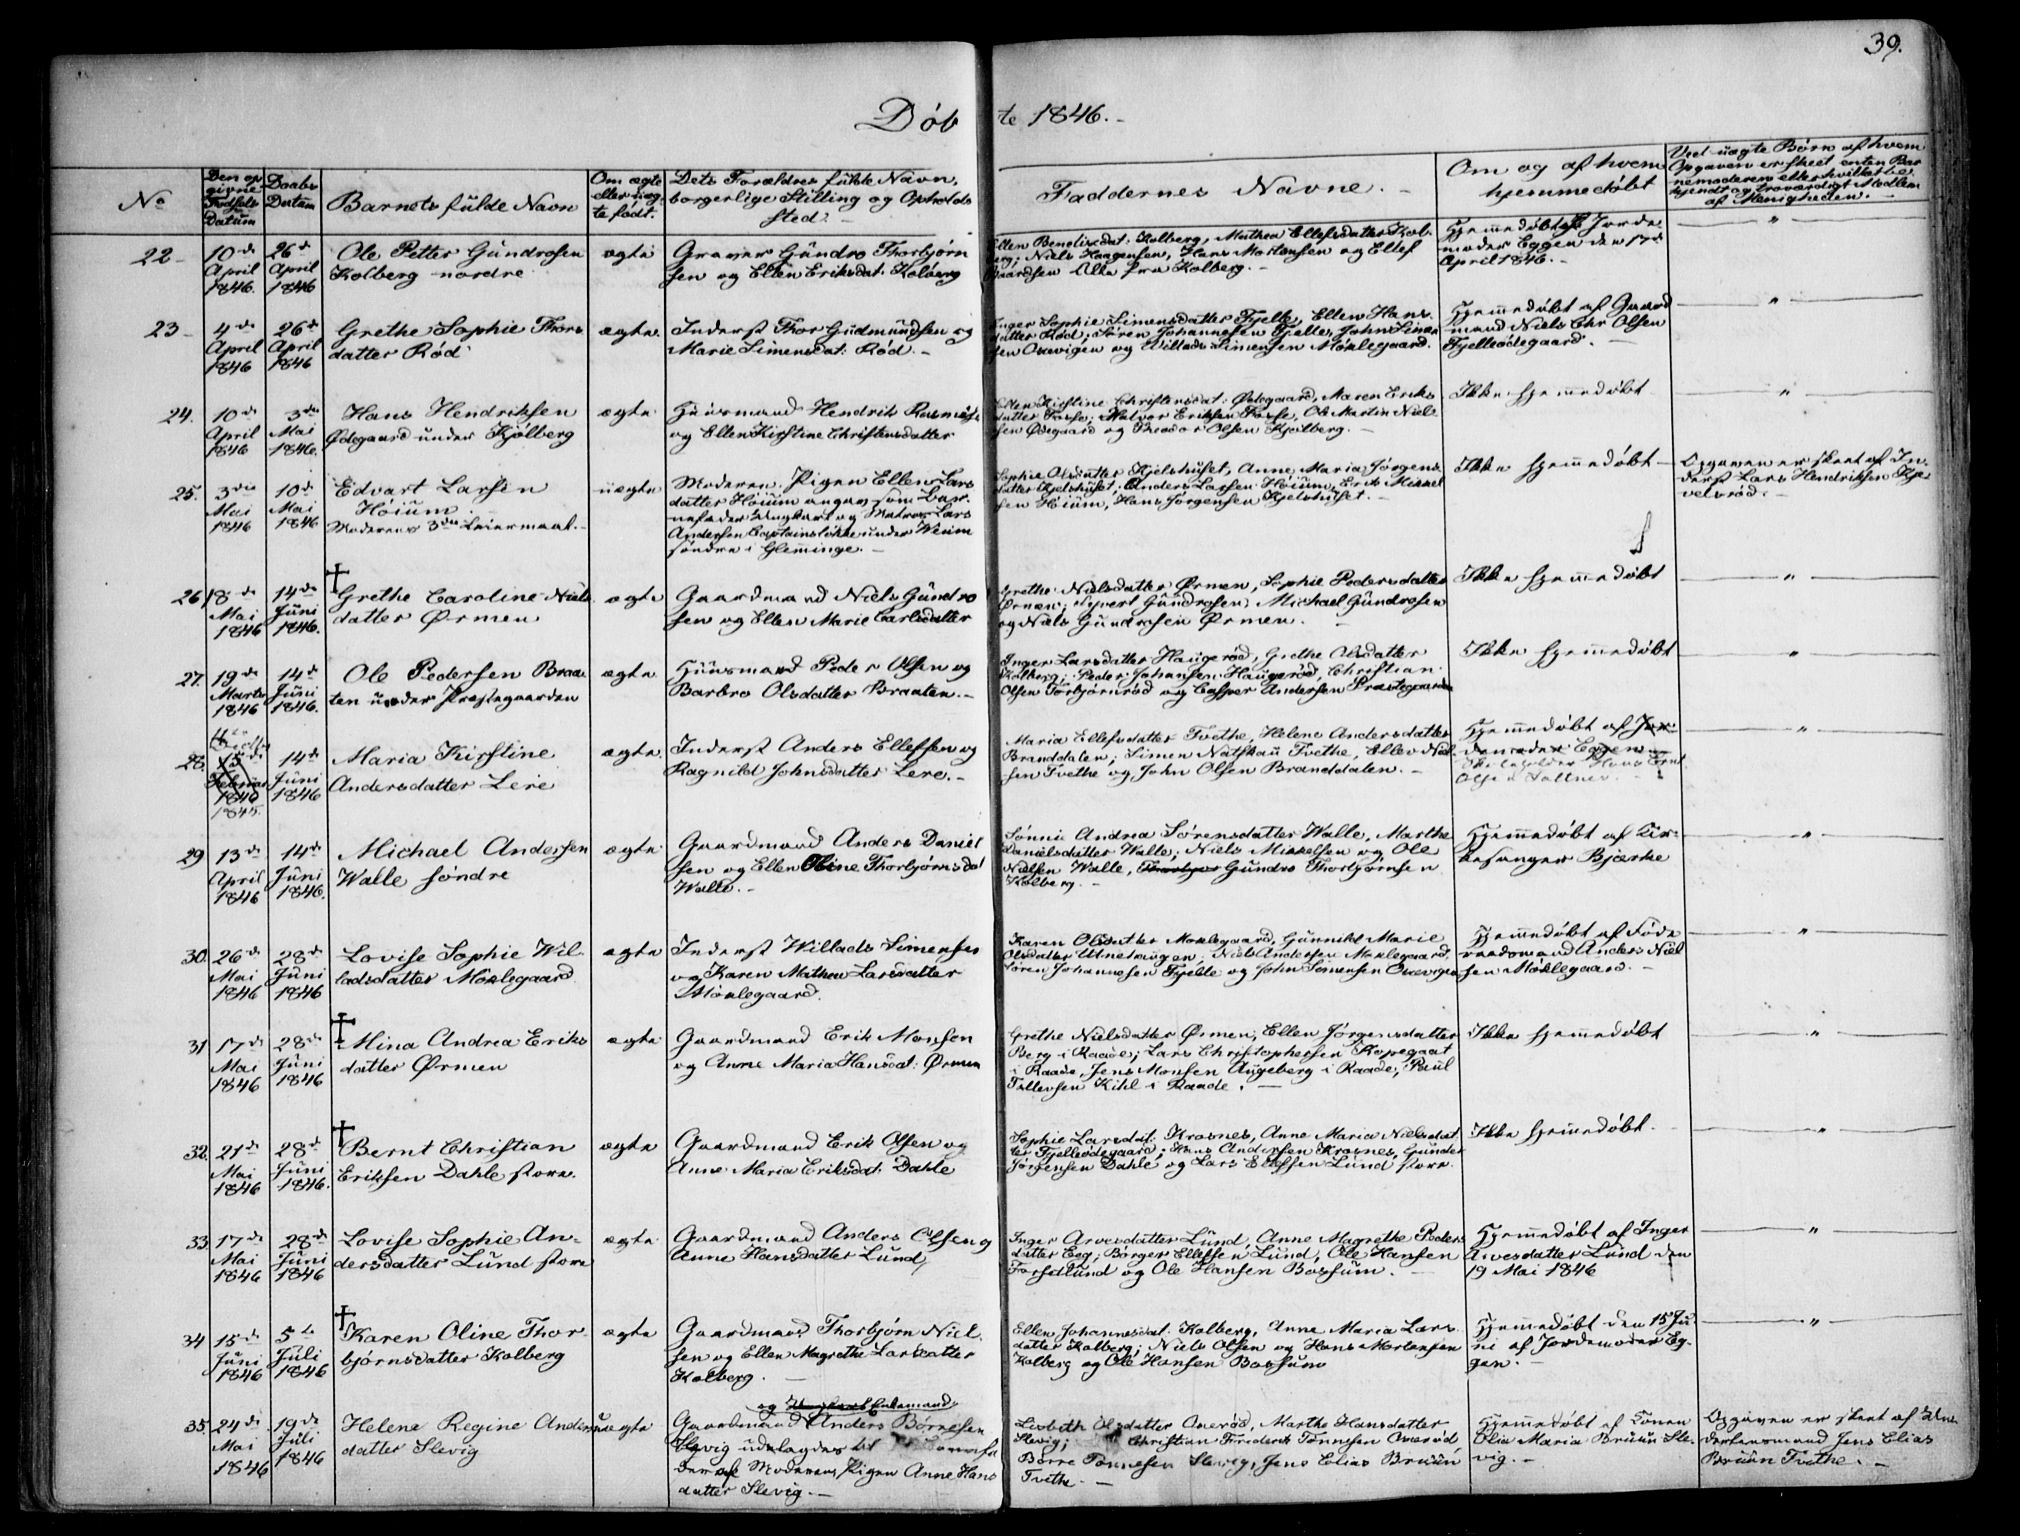 39.
Døbte 1846.
No
Den opgivne Fødsels Datum
Daabs Datum
Barnets fulde Navn
Om ægte eller uægte født.
Dets Forældres fulde Navn, borgerlige Stilling og Opholdssted.
Faddernes Navne.
Om og af hvem hjemmedøbt
Ved uægte Børn af hvem Opgaven er skeet enten Barnemoderen eller hvilket bekjendt og troværdigt Medlem af Menigheden.
22
10de April 1846.
26d April 1846
Ole Petter Gundrosen
Kolberg nordre
ægte
Graver Gundro Thorbjørn
sen og Ellen Eriksdat: Kolberg
Ellen Bendixdat: Kolberg, Mathea Ellefsdatter Kol-
berg; Niels Haagensen, Hans Mortensen og Ellef
Alle fra Kolberg.
Hjemmedøbt af Jorde
moder Eggen den 17de
April 1846.
23
4de April 1846
26de April 1846
Grethe Sophie Thors
datter Rød
ægte
Inderst Thor Gudmundsen og
Marie Simensdat: Rød.
Inger Sophie Simensdatter Fjelle, Ellen Hans
datter Rød; Søren Johannesen Fjelle, John Simen
sen Oxevigen og Willads Simensen Møklegaard.
Hjemmedøbt af Gaard
mand Niels Chr Olsen
Fjelleødegaard.
24.
10de April 1846
3die Mai 1846.
Hans Hendriksen
Ødegaard under Kjølberg
ægte
Huusmand Hendrik Rasmus
og Ellen Kirstine Christensdatter
Ellen Kirstine Christensdat: Ødegaard, Maren Eriks
datter Fosse, Halvor Eriksen Fosse, Ole Martin Niel-
sen Ødegaard og Theodor Olsen Kjølberg.
Ikke hjemmedøbt
25.
3die Mai 1846
10de Mai 1846
Edvart Larsen
Høium
Moderens 3die Leiermaal.
uægte
Moderen Pigen Ellen Lars
datter Høium angav som Bar-
nefader Ungkarl og Matros Lars
Andersen Captainsløkke under Weum
søndre i Glemminge.
Sophie Olsdatter Kjelshuset, Anne Maria Jørgens
datter Kjelshuset; Anders Larsen Høium, Erik Mikkel
sen Høium, Hans Jørgensen Kjelshuset.
Ikke hjemmedøbt
Opgaven er skeet af In-
derst Lars Hendriksen Kje
velsrød.
26
18de Mai 1846
14de Juni 1846.
Grethe Caroline Niels
datter Ørmen
ægte
Gaardmand Niels Gundro
sen og Ellen Marie Carlsdatter
Grethe Nielsdatter Ørmen, Sophie Pedersdatter
Ørmen; Syvert Gundrosen, Michael Gundrosen
og Niels Gundrosen Ørmen.
Ikke hjemmedøbt
27.
19de Marts 1846
14de Juni 1846.
Ole Pedersen Braa
ten under Præstegaarden
ægte
Huusmand Peder Olsen og
Barbro Olsdatter Braaten.
Inger Larsdatter Haugerød, Grethe Olsdatter
Kolberg; Peder Johansen Haugerød, Christian
Olsen Torbjørnrød og Casper Andersen Præstegaarden
Ikke hjemmedøbt
28.
15 Februar 1846
1845.
14de Juni 1846
Maria Kirstine
Andersdatter Lere
ægte
Inderst Anders Ellefsen og
Ragnild Johnsdatter Lere.
Maria Ellefsdatter Tvethe, Helene Andersdatter
Branddalen; Simen Tvethe, Ellev Niel
sen Tvethe og John Olsen Branddalen.
Hjemmedøbt af Jor-
demoder Eggen
29
13de April 1846
14de Juni 1846.
Michael Andersen
Walle søndre
ægte
Gaardmand Anders Daniel
sen og Ellen Oline Thorbjørnsdat
Walle.
Sønnie Andrea Sørensdatter Walle, Marthe
Danielsdatter Walle; Niels Mikkelsen og Ole
Nielsen Walle, Gundro Thorbjørnsen
Kolberg.
Hjemmedøbt af Kir-
kesanger Bjerke
30.
26de Mai 1846
28de Juni 1846
Lovise Sophie Wil-
ladsdatter Møklegaard
ægte
Inderst Willads Simensen
og Karen Mathea Larsdatter
Møklegaard.
Karen Olsdatter Møklegaard, Gunnild Marie
Olsdatter Utnetangen, Niels Andersen Møklegaard,
Søren Johannesen Fjelle og John Simensen Oxevigen
Hjemmedøbt af Føde
raadsmand Anders Niel
sen Møklegaard.
31
17de Mai 1846
28de Juni 1846
Mina Andrea Eriks
datter Ørmen
ægte
Gaardmand Erik Monsen
og Anne Maria Hansdat: Ørmen
Grethe Nielsdatter Ørmen, Ellen Jørgensdatter
Berg i Raade; Lars Christophersen Kopegaat
i Raade, Jens Monsen Augeberg i Raade, Paul
Tollevsen Kihl i Raade.
Ikke hjemmedøbt
32.
21de Mai 1846
28de Juni 1846.
Bernt Christian
Eriksen Dahle store.
ægte
Gaardmand Erik Olsen og
Anne Maria Eriksdat: Dahle
Sophie Larsdat: Krosnes, Anne Maria Nielsdat
ter Fjelleødegaard; Hans Andersen Krosnes, Gunder
Jørgensen Dahle og Lars Ellefsen Lund store.
Ikke hjemmedøbt.
33.
17de Mai 1846
28de Juni 1846
Lovise Sophie An-
dersdatter Lund store
ægte
Gaardmand Anders Olsen og
Anne Hansdatter Lund
Inger Arvesdatter Lund, Anne Magrethe Peders
datter Eeg; Børger Ellefsen Lund, Ole Hansen
Forsetlund og Ole Hansen Bossum.
Hjemmedøbt af Inger
Arvesdatter Lund den
19 Mai 1846
34
15de Juni 1846
5te Juli 1846
Karen Oline Thor-
bjørnsdatter Kolberg
ægte
Gaardmand Thorbjørn Niel-
sen og Ellen Magrethe Larsdatter
Kolberg.
Ellen Johannesdat: Kolberg, Anne Maria Lars
datter Kolberg; Niels Olsen og Hans Mortensen
Kolberg og Ole Hansen Bossum
Hjemmedøbt den 15 Ju
ni af Jordemoder Eg-
gen.
35.
24de Mai 1846
19de Juli 1846
Helene Regine Anders
datter Slevig
uægte
og Enkemand
Gaardmand Anders Børresen
Slevig udlagdes til
der af Moderen, Pigen Anne Hans
datter Slevig.
Lisbeth Olsdatter Onerød, Marthe Hansdatter
Slevig; Christian Frederik Tønnesen Onerød,
Børre Tønnesen Slevig, Jens Elias Bruun
Tvethe.
Hjemmedøbt af Konen
Olia Maria Bruun Sle-
vig.
Opgaven er skeet af Un-
derlensmand Jens Elias
Bruun Tvethe.